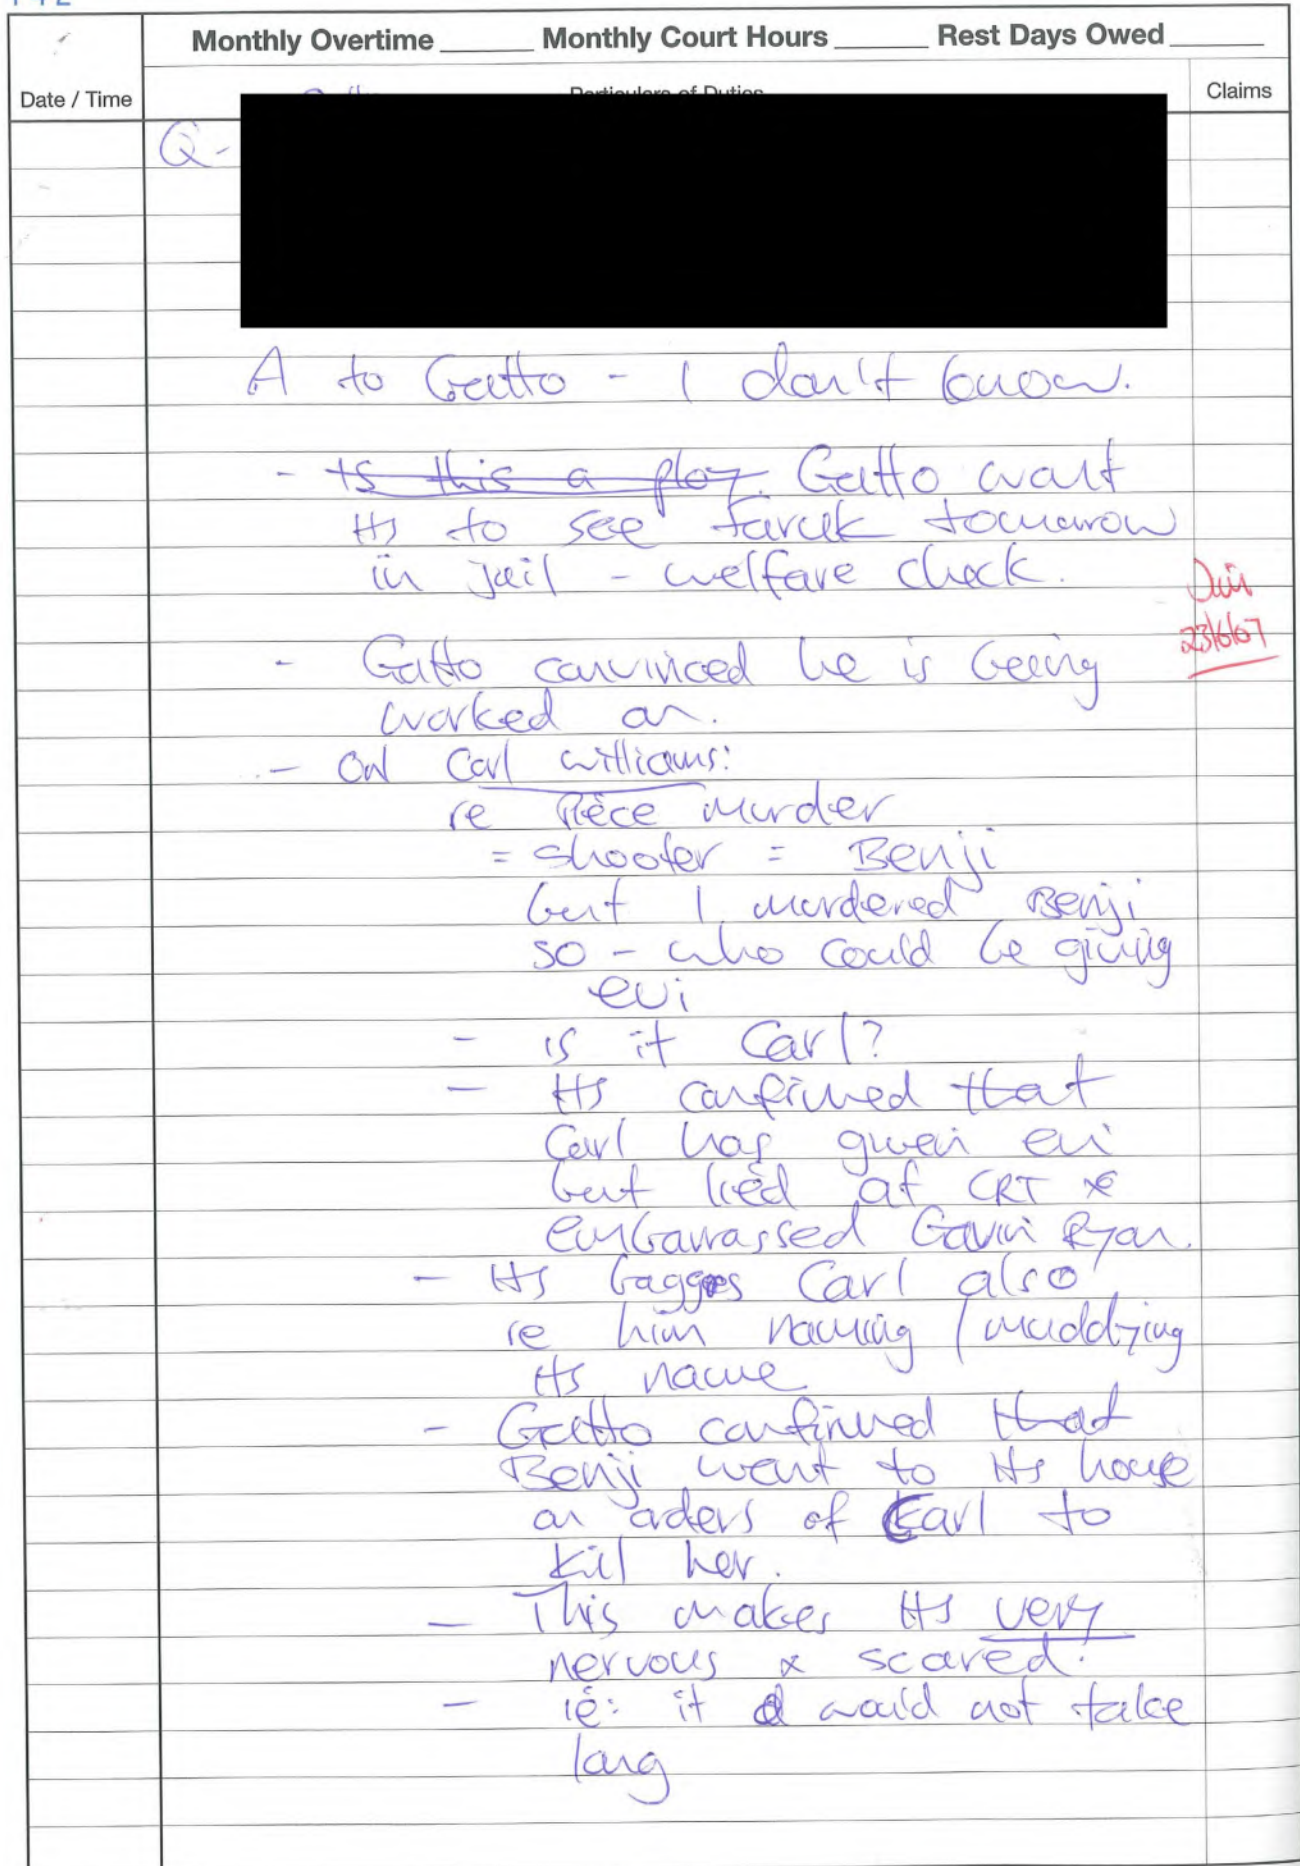 Monthly Overtime Monthly Court Hours Rest Days Owed
Date / Time Particulars of Duties Claims
Q-
A to Gatto - I don't know.
- Is this a ploy. Gatto want
HS to see Faruk tomorrow
in jail - welfare check.
23/6/07
- Gatto convinced he is being
worked on.
- ON Carl Williams:
re Peirce murder
= shooter = Benji
but I murdered Benji
so - who could be giving
evi
- is it Carl?
- HS confirmed that
Carl has given evi
but lied at CRT &
embarrassed Gavin Ryan.
- HS bagges Carl also
re him naming / muddying
HS name
- Gatto confirmed that
Benji went to HS house
on orders of Carl to
kill her.
- This makes HS very
nervous & scared.
- ie: it would not take
long